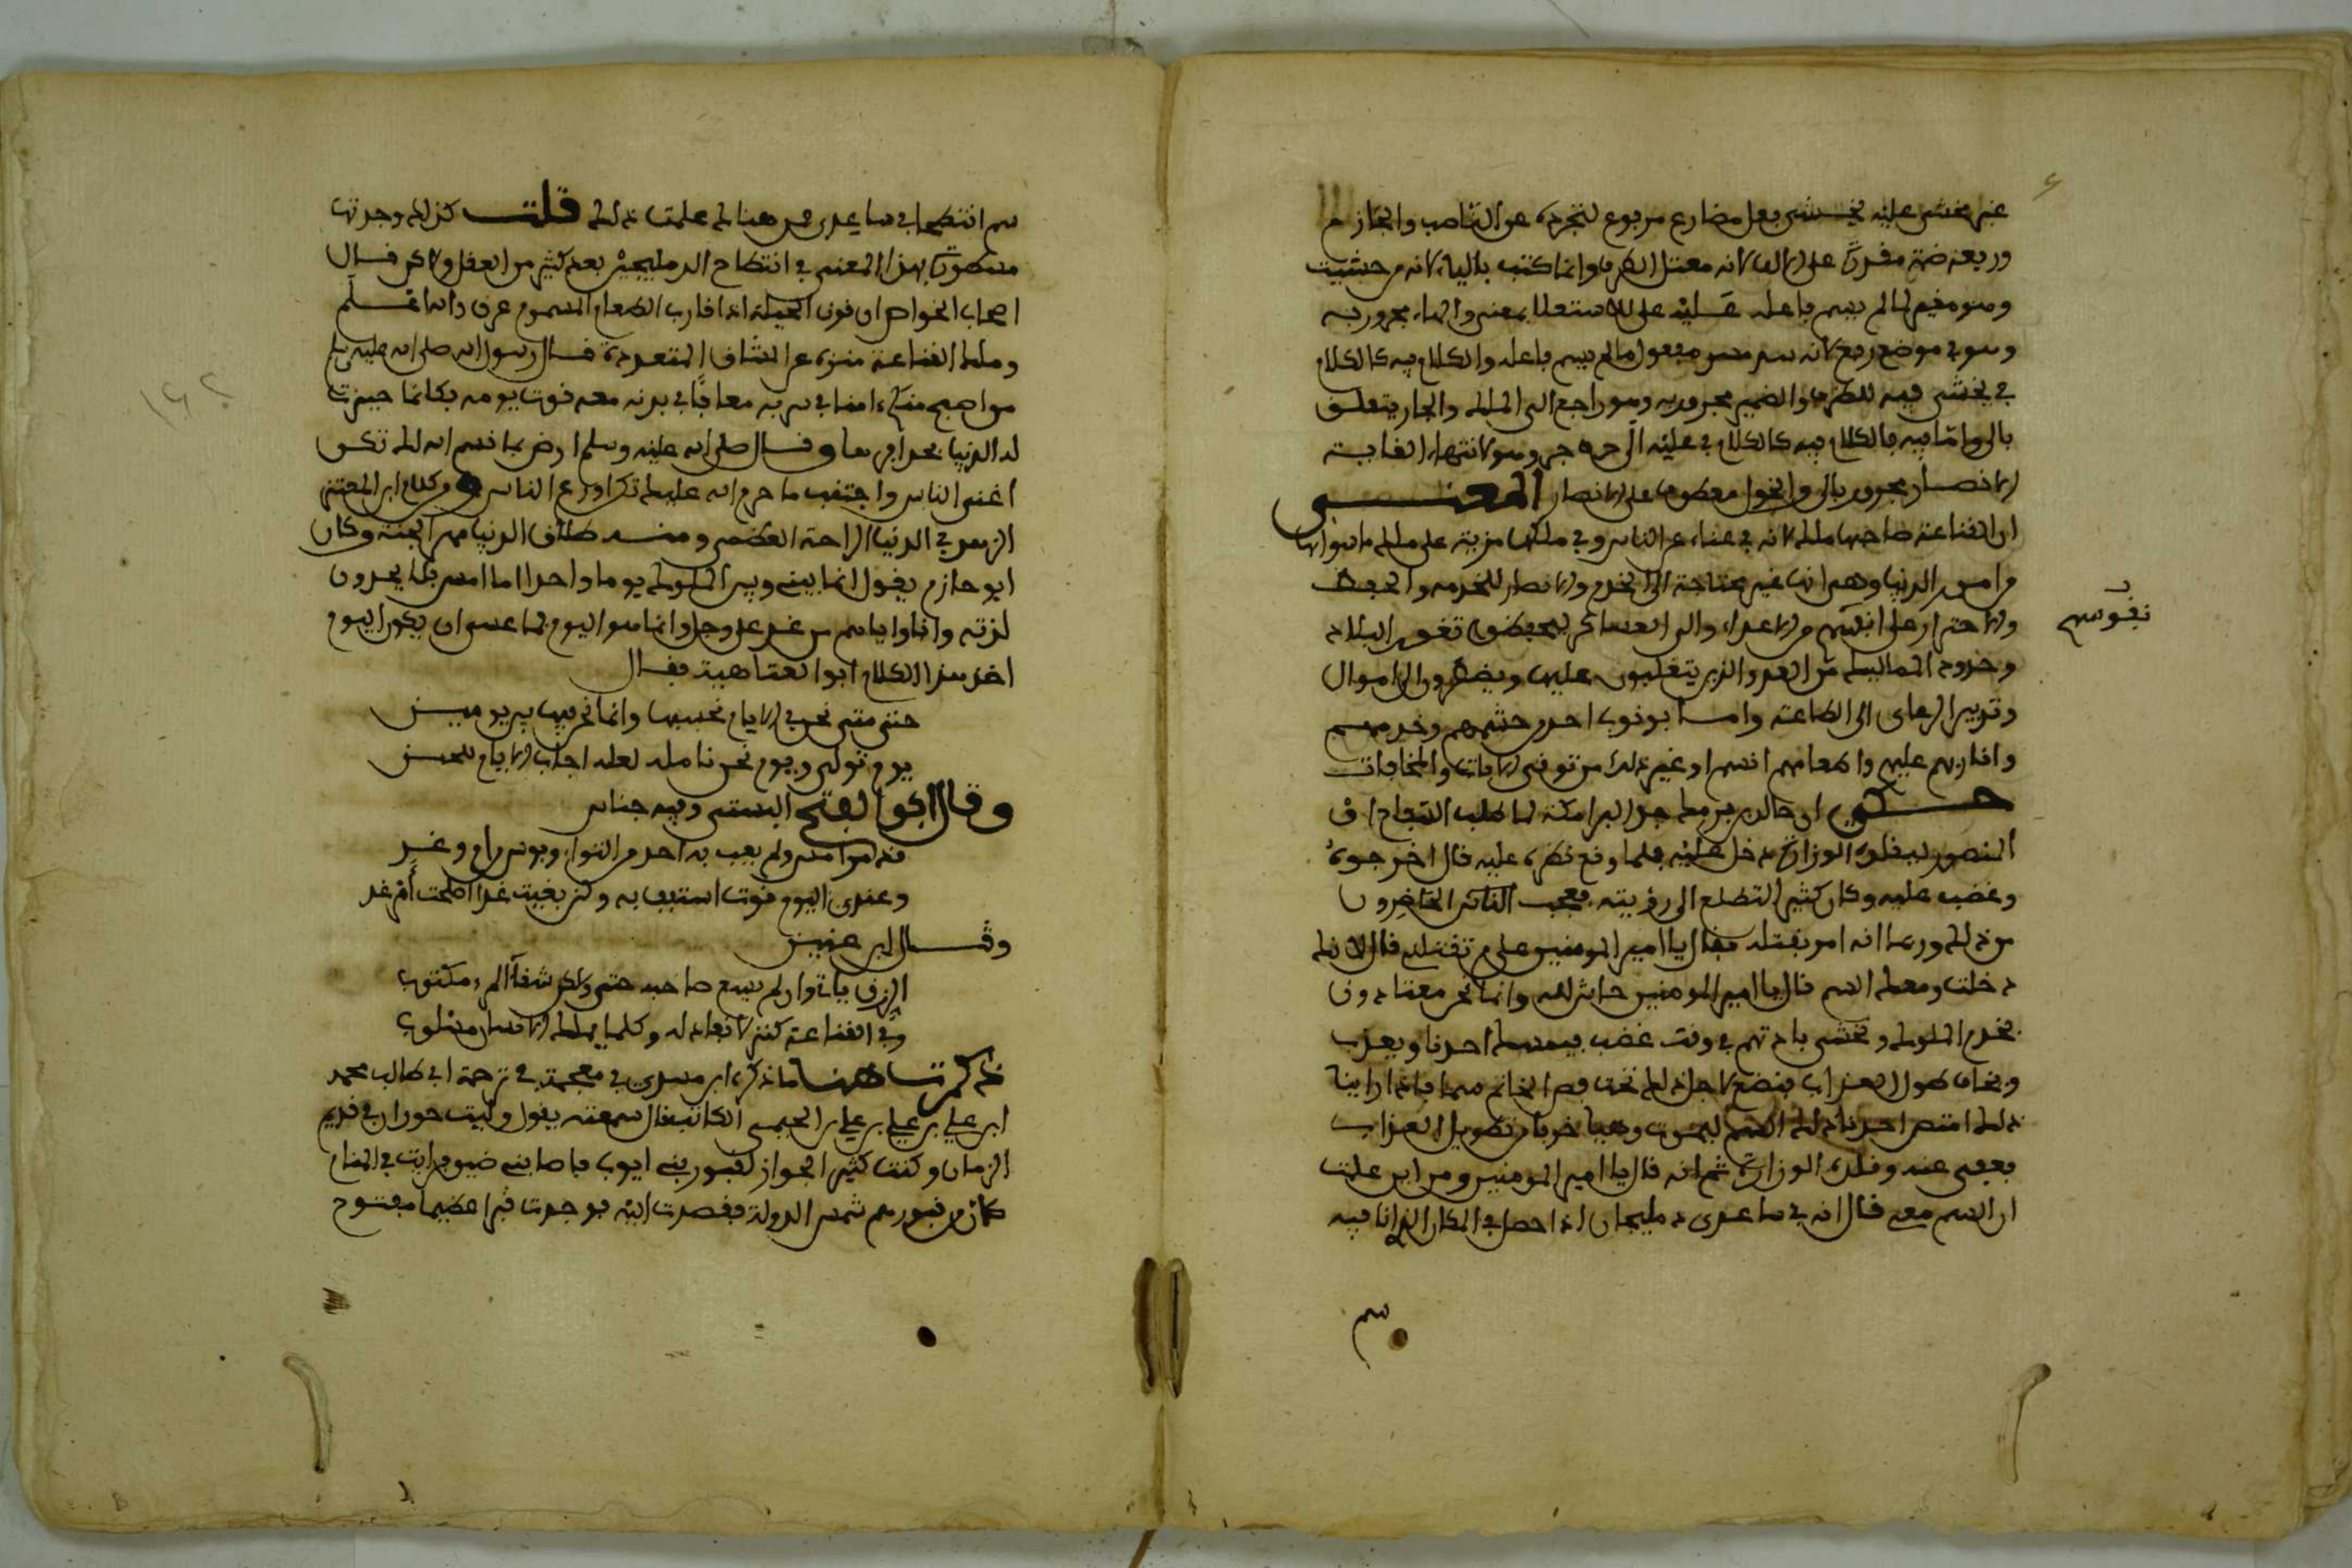 غير مخشي عليه يخشى فعل مضارع مرفوع لتجرده عن الناصب والجازم
ورفعه ضمة مقدرة على الالف لانه معتل الطرف وانما كتب بالياء لانه من خشيت
وهو مغير لما لم يسم فاعله عليه على للاستعلا بمعنى والهاء مجرور به
وهو في موضع رفع لانه سد مسد مفعول ما لم يسم فاعله والكلام فيه كالكلام
في يخشى فيه للظرف والضمير مجرور به وهو راجع الى الملك والجار يتعلق
بالى واما فيه فالكلام فيه كالكلام في عليه الى حرف جر وهو لانتهاء الغاية
الانصار مجرور بالى والخول معطوف على الانصار المعنى
ان القناعة صاحبها ملك لانه في غناء عن الناس وفي ملكها مزية على ملك ما سواها
من امور الدنيا وهي انها غير محتاجة الى الخدم والانصار للخدمة والحفظ
والاحتراز على انفسهم من الاعداء والى العساكر ليحفظون ثغور البلاد
نفوسهم
وحدود الممالك من العدو الذين يتغلبون عليها ويضطرون الى الاموال
وتدبير الرعايا الى الطاعة واما بوثوب احد من حشمهم وخدمهم
واقاربهم عليهم واطعامهم السم او غير ذلك من توقي الافات والمخافات
حكي ان خالد بن برمك جد البرامكة لما طلب السفاح او
المنصور ليقلده الوزارة دخل عليه فلما وقع نظره عليه قال اخرجوه
وغضب عليه وكان كثير التطلع الى رؤيته فعجب الناس الحاضرون
من ذلك وربما انه امر بقتله فقال يا امير المومنين علام تقتلني قال لانك
دخلت ومعك السم قال يا امير المومنين حاش لله وانما نحن معتادون
بخدم الملوك ونخشى بادرتهم في وقت غضب فيمسك احدنا ويعذب
ونخاف طول العذاب فنضع لاجل ذلك تحت فص الخاتم سما فاذا راينا
ذلك امتص احدنا ذلك السم ليموت وحيا خوفا من تطويل العذاب
فعفى عنه وقلده الوزارة ثم انه قال يا امير المومنين ومن اين علمت
ان السم معي قال انه في ساعدي دمليجان اذا حصل في المكان الذي انا فيه
سم
سم انتطحا في ساعدي فمن هنالك علمت ذلك قلت كذلك وجدتها
مسطورة بهذا المعنى في انتطاح الدمليجين بعد كثير من العقل ولاكن قال
اصحاب الخواص ان قرن الحية اذا قارب الطعام المسموم عرق والله اعلم
وملك القناعة منزه عن المشاق المتعددة قال رسول الله صلى الله عليه وسلم
من اصبح منكم امنا في سربه معافا في بدنه معه قوت يومه فكانما حيزت
له الدنيا بحذافيرها وقال صلى الله عليه وسلم ارض بما قسم الله لك تكن
اغنى الناس واجتنب ما حرم الله عليك تكن اورع الناس ومن كلام ابن المعتز
الزهد في الدنيا الراحة العظمى ومنه طلاق الدنيا مهر الجنة وكان
ابو حازم يقول انما بيني وبين الملوك يوما واحدا اما امس فلا يجدون
لذته وانا واياهم من غد على وجل وانما هو اليوم فما عسى ان يكون اليوم
اخذ هذا الكلام ابو العتاهية فقال
حتى متى نحن في الايام نحسبها وانما نحن فيها بين يومين
يوم تولى ويوم نحن ناملــه لعله اجلب الايام للحين
وقال ابو الفتح البستي وفيه جناس
وعندي اليوم قوت استعف به وان بقيت غدا اصلحت امر غد
وقال ابن عنين
الرزق ياتي وان لم يسع صاحبه حتما ولكن شقاء المرء مكتوب
وفي القناعة كنز لا نفاد له وكلما يملك الانسان مسلوب
ذكرت هنا ما ذكره ابن مسدي في معجمه في ترجمة ابي طالب محمد
ابن علي بن علي بن علي بن الخيمي الكاتب قال سمعته يقول وليت حوران في قديم
الزمان وكنت كثير الجواز لقبور بني ايوب فاصابني ضيق فرايت في المنام
كان من قبورهم شمس الدولة فقصدت اليه فوجدت قبرا عظيما مفتوح